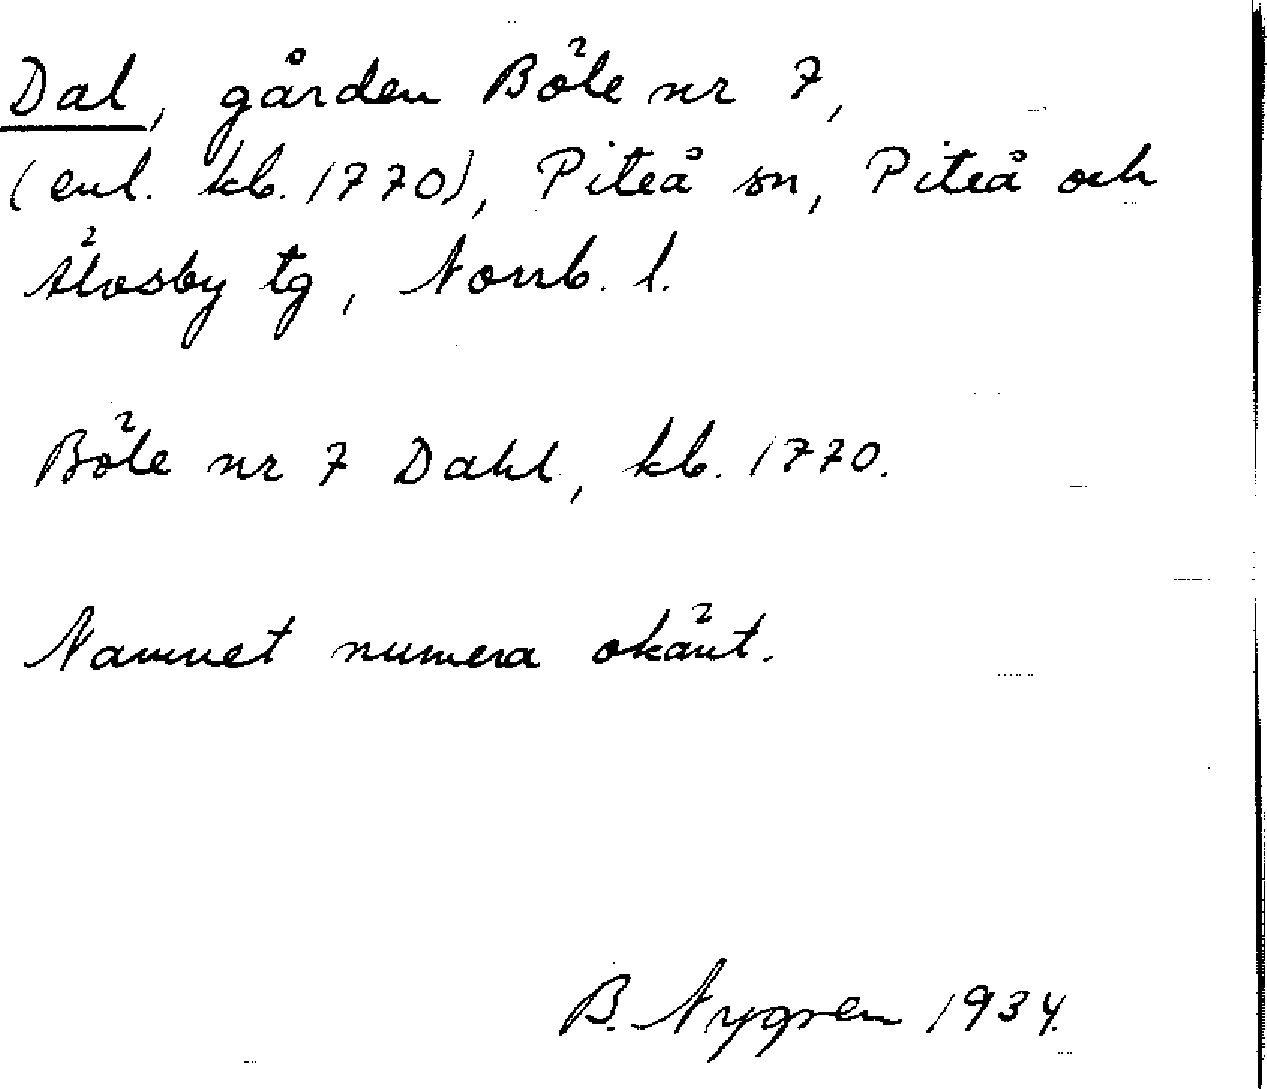 Dal, gården Böle nr 7,
(enl. kb. 1770), Piteå sn, Piteå och
Älvsby tg, Norrb. l.
Böle nr 7 Dahl, kb. 1770.
Namnet numera okänt.
B. Nygren 1934.